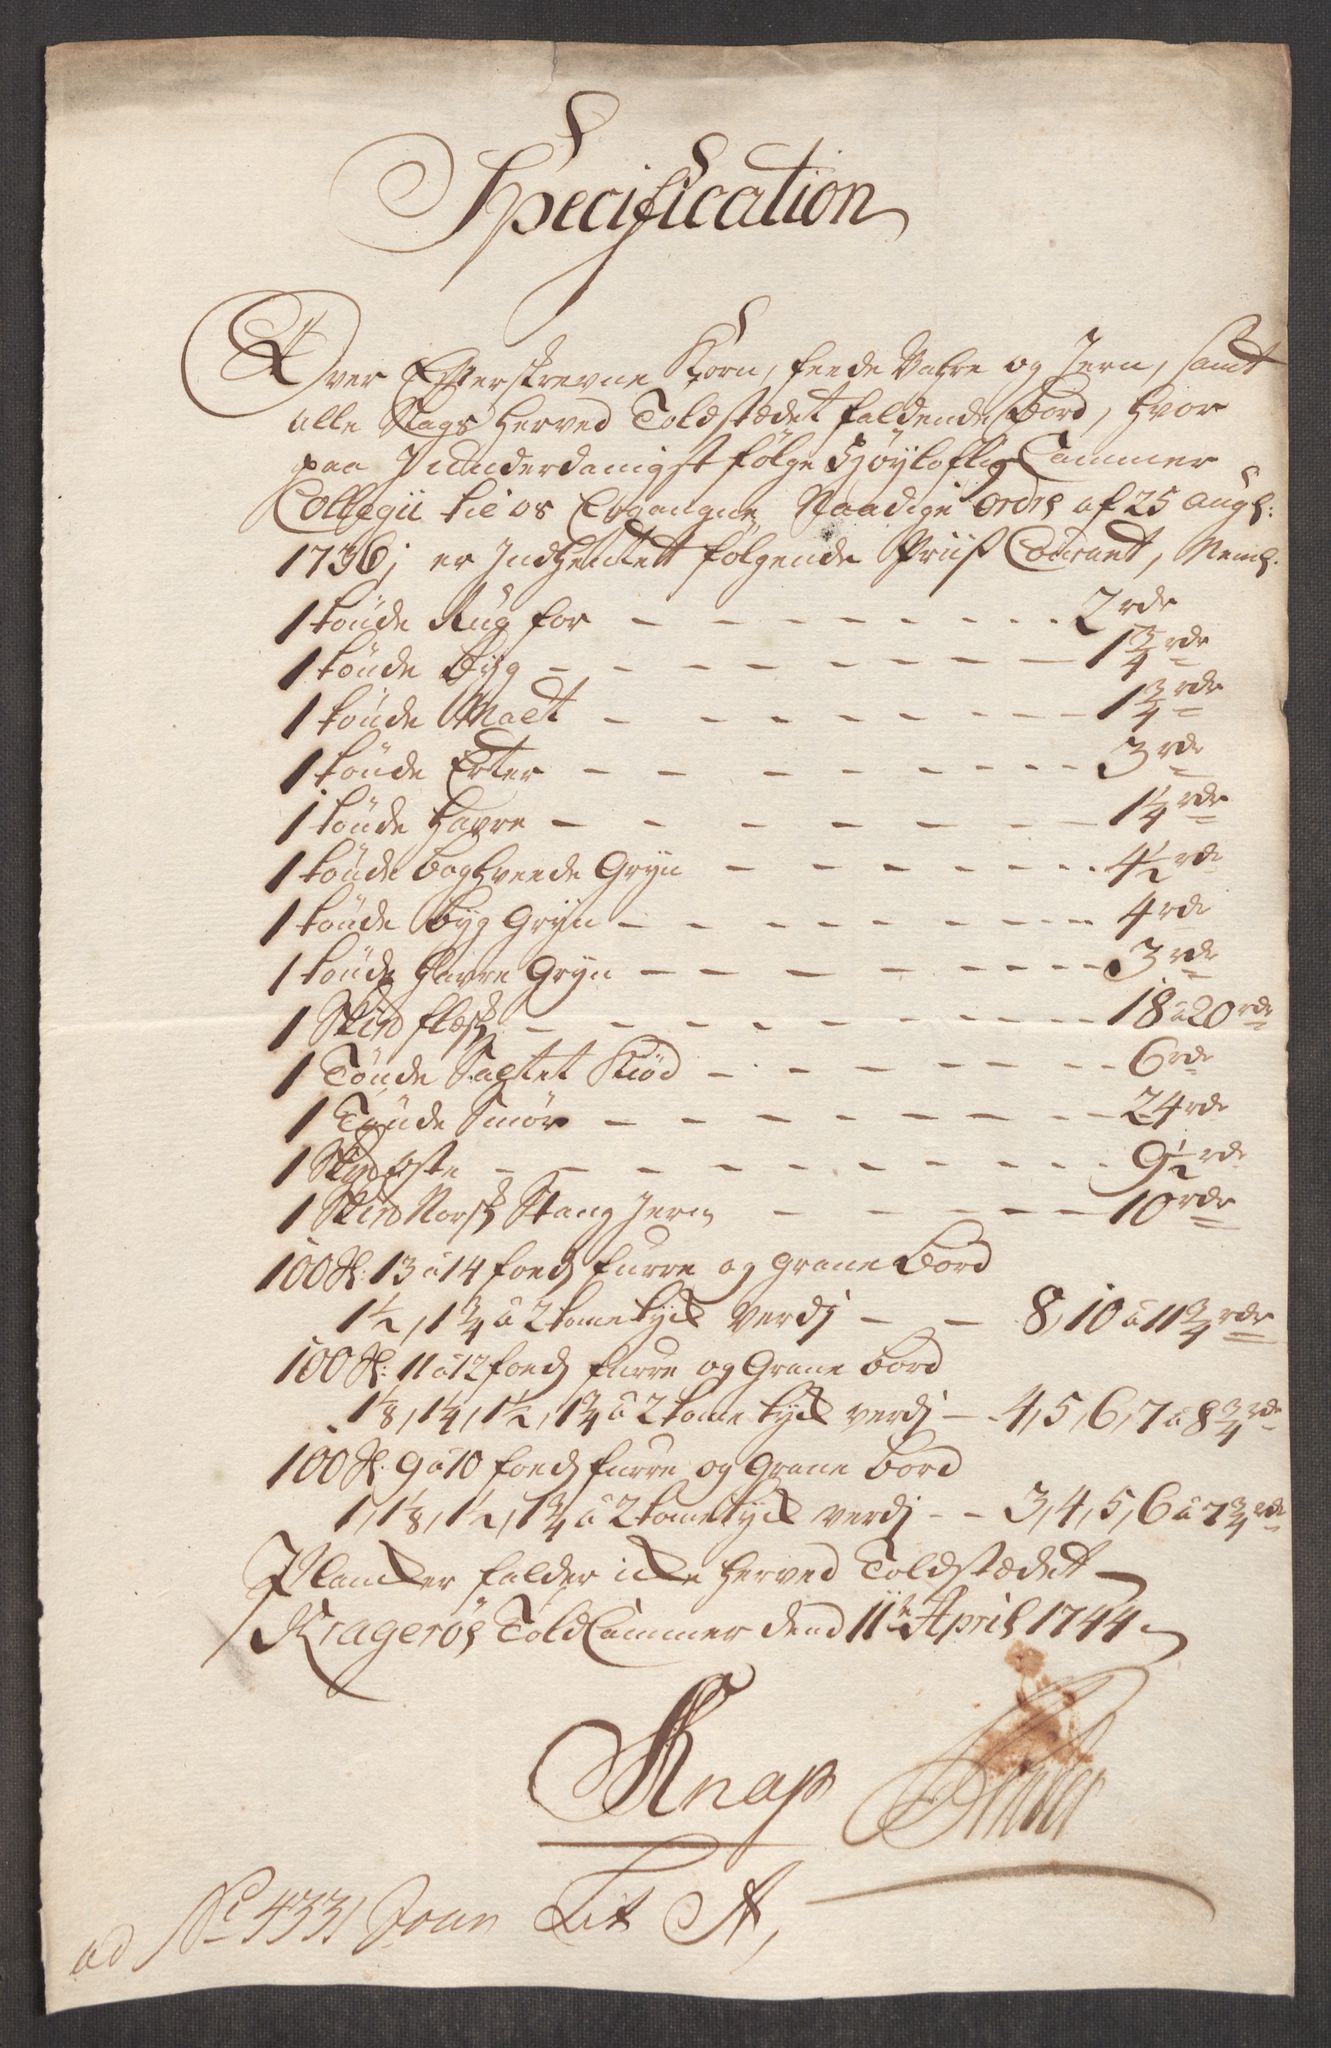 Specification
Over Efterskrevne Korn, feede Vahre og Jern, samt
alle Slags herved Toldstædet faldende Bord, hvor
paa I underdanigst følge Høyloflig Cammer
Collegii til os Ergangne Naadige Ordre af 25 Aug:
1736; er Indhentet følgende Priis Courant, Neml.
1 tönde Rug for — 2 rdr
1 tönde Byg — 1 3/4 rdr
1 tönde Malt — 1 3/4 rdr
1 tönde Erter — 3 rdr
1 tönde Havre — 1 1/4 rdr
1 tönde Boghveede Gryn — 4 1/2 rdr
1 tönde Byg Gryn — 4 rdr
1 tönde Havre Gryn — 3 rdr
1 Skpd flesk — 18 a 20 rdr
1 Tönde Saltet Kiød — 6 rdr
1 Tönde Smør — 24 rdr
1 Skpd oste — 9 1/2 rdr
1 Skpd Norsk Stang Jern — 10 rdr
100 st: 13 a 14 foeds furre og grane Bord
1 1/2, 1 3/4 a 2 tome tyck verdj — 8, 10 a 11 3/4 rdr
100 st: 11 a 12 foeds furre og Grane bord
1 1/8, 1 1/4, 1 1/2, 1 3/4 a 2 tome tyck verdj — 4, 5, 6, 7 a 8 3/4 rdr
100 st. 9 a 10 foeds furre og Grane bord
1, 1 1/8, 1 1/2, 1 3/4 a 2 tome tyck verdj — 3, 4, 5, 6 a 7 3/4 rdr
Plancker falder icke herved Toldstædet
Kragerøe Told Cammer dend 11te April 1744
Knap
ad No 4331 Lit A,